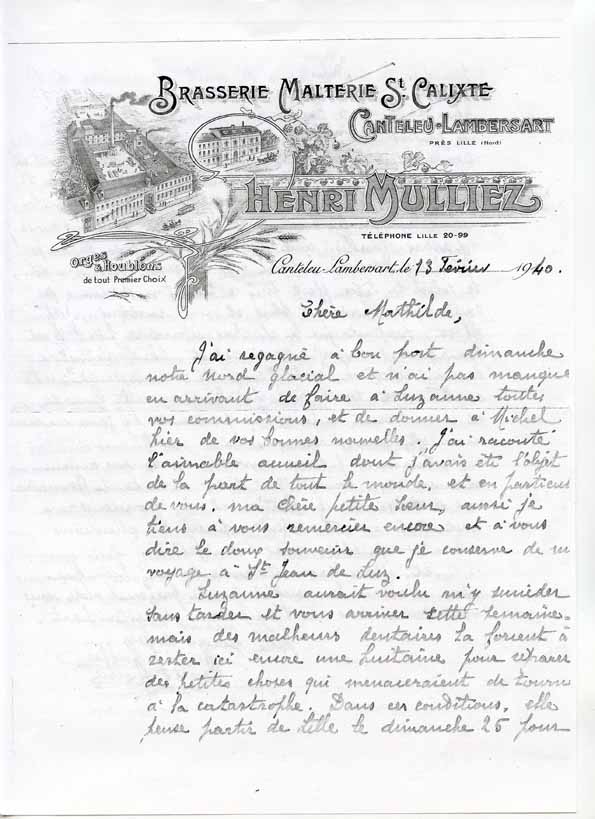 BRASSERIE MALTERIE St. CALIXTE
CANTELEU-LAMBERSART
PRÈS LILLE (Nord)
HENRI MULLIEZ
TÉLÉPHONE LILLE 20-99
Orges
& Houblons
de tout Premier Choix
Canteleu-Lambersart, le 13 Février 1940.
Chère Mathilde,
J'ai regagné à bon port dimanche
notre Nord glacial et n'ai pas manqué
en arrivant de faire à Suzanne toutes
vos commissions, et de donner à Michel
hier de vos bonnes nouvelles. J'ai raconté
l'aimable accueil dont j'avais été l'objet
de la part de tout le monde, et en particu
de vous, ma chère petite sœur, aussi je
tiens à vous remercier encore et à vous
dire le doux souvenir que je conserve de m
voyage à St Jean de Luz.
Suzanne aurait voulu m'y succéder
sans tarder et vous arriver cette semaine-
mais des malheurs dentaires la forcent à
rester ici encore une huitaine pour réparer
des petites choses qui menaceraient de tourn
à la catastrophe. Dans ces conditions, elle
pense partir de Lille le dimanche 25 pour